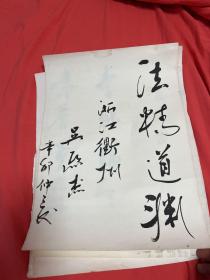 法精道渊
浙江衢州
吴熙杰
辛卯仲